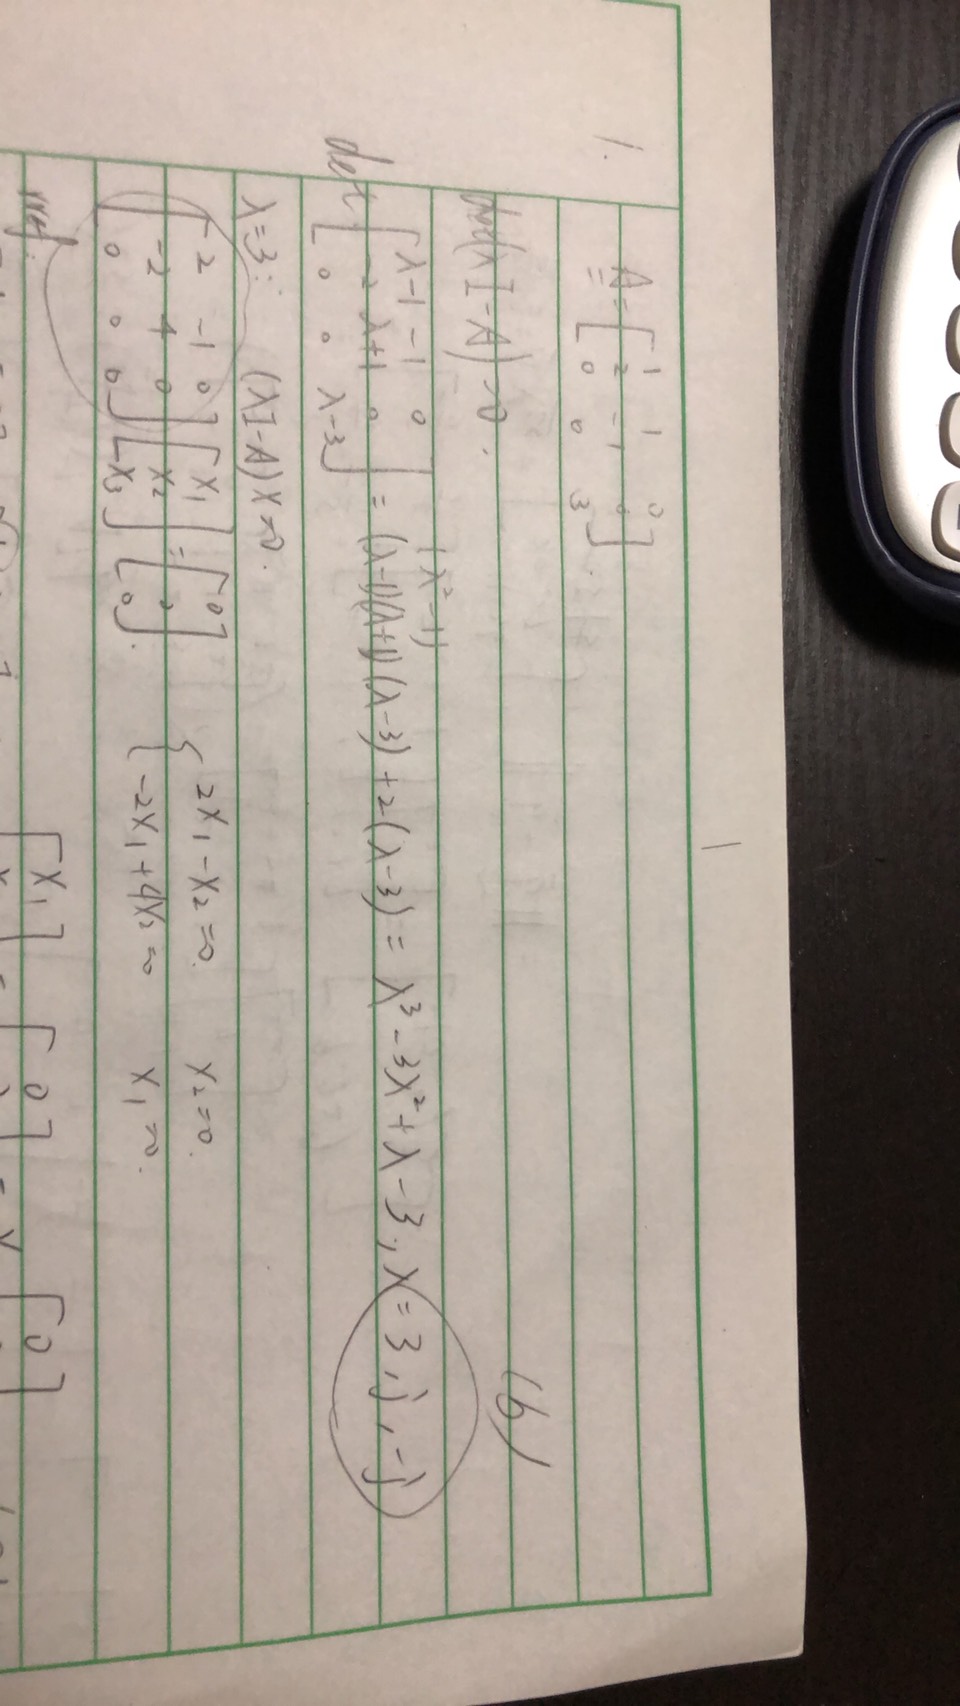 1
1. A = [ 1 1 0
2 -1 0
0 0 3 ].
det(λI-A)=0.
(λ²-1)
(b)
det [ λ-1 -1 0
-2 λ+1 0
0 0 λ-3 ] = (λ-1)(λ+1)(λ-3)+2(λ-3) = λ³-3λ²+λ-3., λ=3, j, -j
λ=3: (λI-A)X=0.
[ 2 -1 0
-2 4 0
0 0 0 ] [ X1
X2
X3 ] = [ 0
0
0 ].
{ 2X1-X2=0. X2=0.
-2X1+4X2=0 X1=0.
rref:
[ X1 [ 0 [ 0